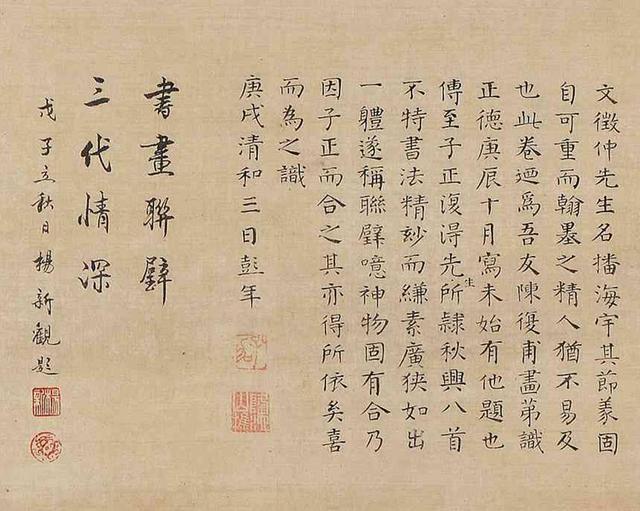 文徵仲先生名播海宇其節義固
自可重而翰墨之精人猶不易及
也此卷迺為吾友陳復甫畫第識
正德庚辰十月寫未始有他題也
傳至子正復得先生所隸秋興八首
不特書法精玅而縑素廣狹如出
一體遂稱聯璧噫神物固有合乃
因子正而合之其亦得所依矣喜
而為之識
庚戌清和三日彭年
書畫聯璧
三代情深
戊子立秋日楊新觀題